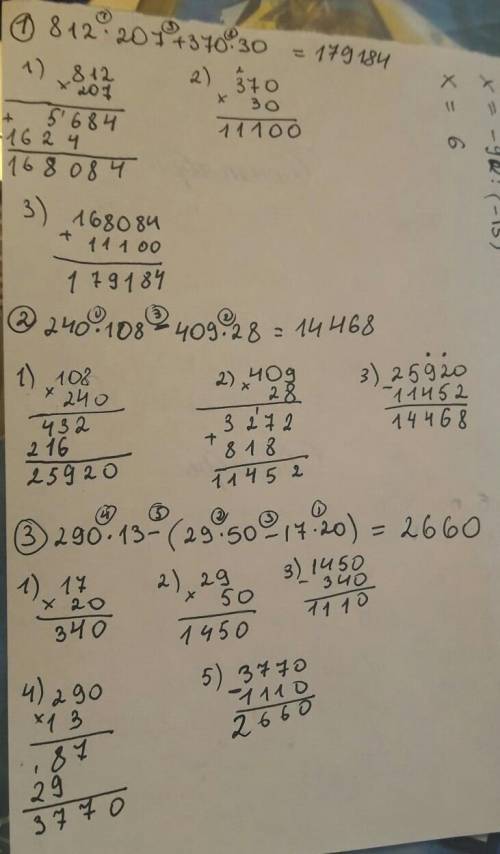 ① 812 · 207 + 370 · 30 = 179184
1) 812
× 207
5684
+
1624
168084
2) 370
× 30
11100
3) 168084
+ 11100
179184
② 240 · 108 - 409 · 28 = 14468
1) 108
× 240
432
216
25920
2) 409
× 28
3272
+ 818
11452
3) 25920
- 11452
14468
③ 290 · 13 - (29 · 50 - 17 · 20) = 2660
1) 17
× 20
340
2) 29
× 50
1450
3) 1450
- 340
1110
4) 290
× 13
87
29
3770
5) 3770
- 1110
2660
x = 6